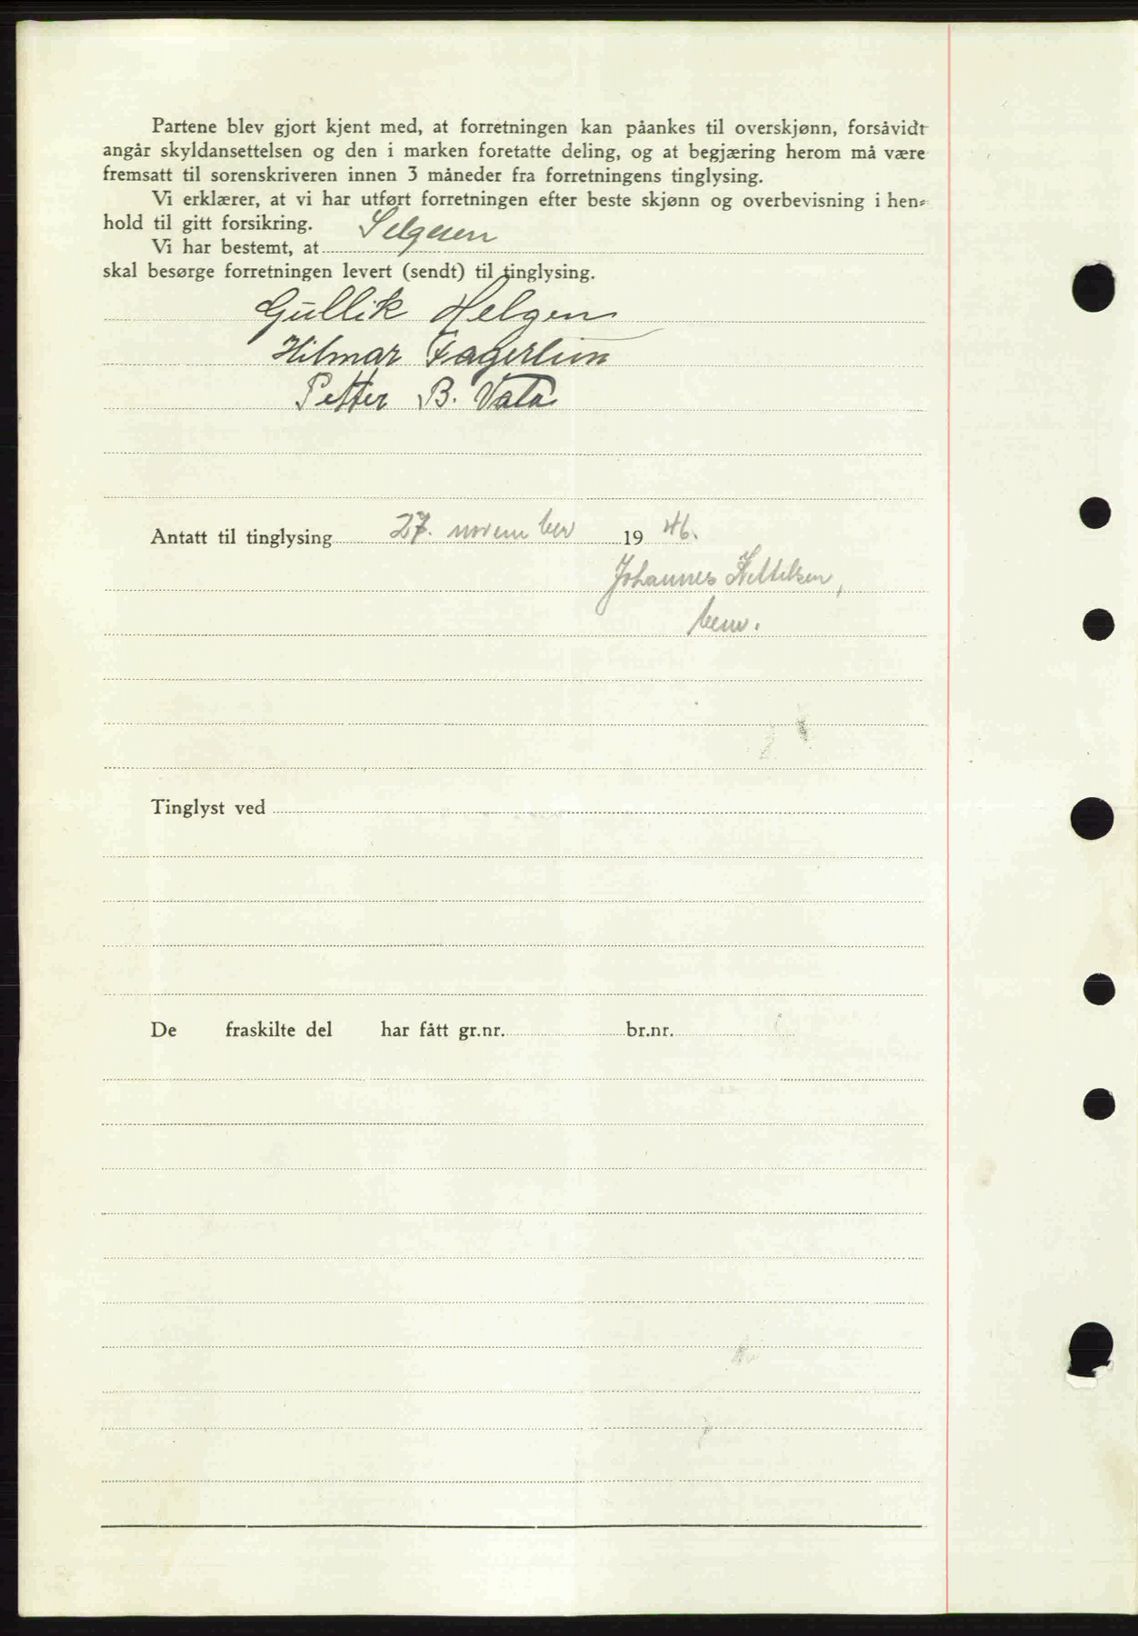 Partene blev gjort kjent med, at forretningen kan påankes til overskjønn, forsåvidt
angår skyldansettelsen og den i marken foretatte deling, og at begjæring herom må være
fremsatt til sorenskriveren innen 3 måneder fra forretningens tinglysing.
Vi erklærer, at vi har utført forretningen efter beste skjønn og overbevisning i hen-
hold til gitt forsikring.
Vi har bestemt, at Selgeren
skal besørge forretningen levert (sendt) til tinglysing.
Gullik Helgen
Hilmar Fagerlim
Petter B. Vata
Antatt til tinglysing 27. november 1946.
Johannes Kittilsen,
bem.
Tinglyst ved
De fraskilte del har fått gr.nr. br.nr.